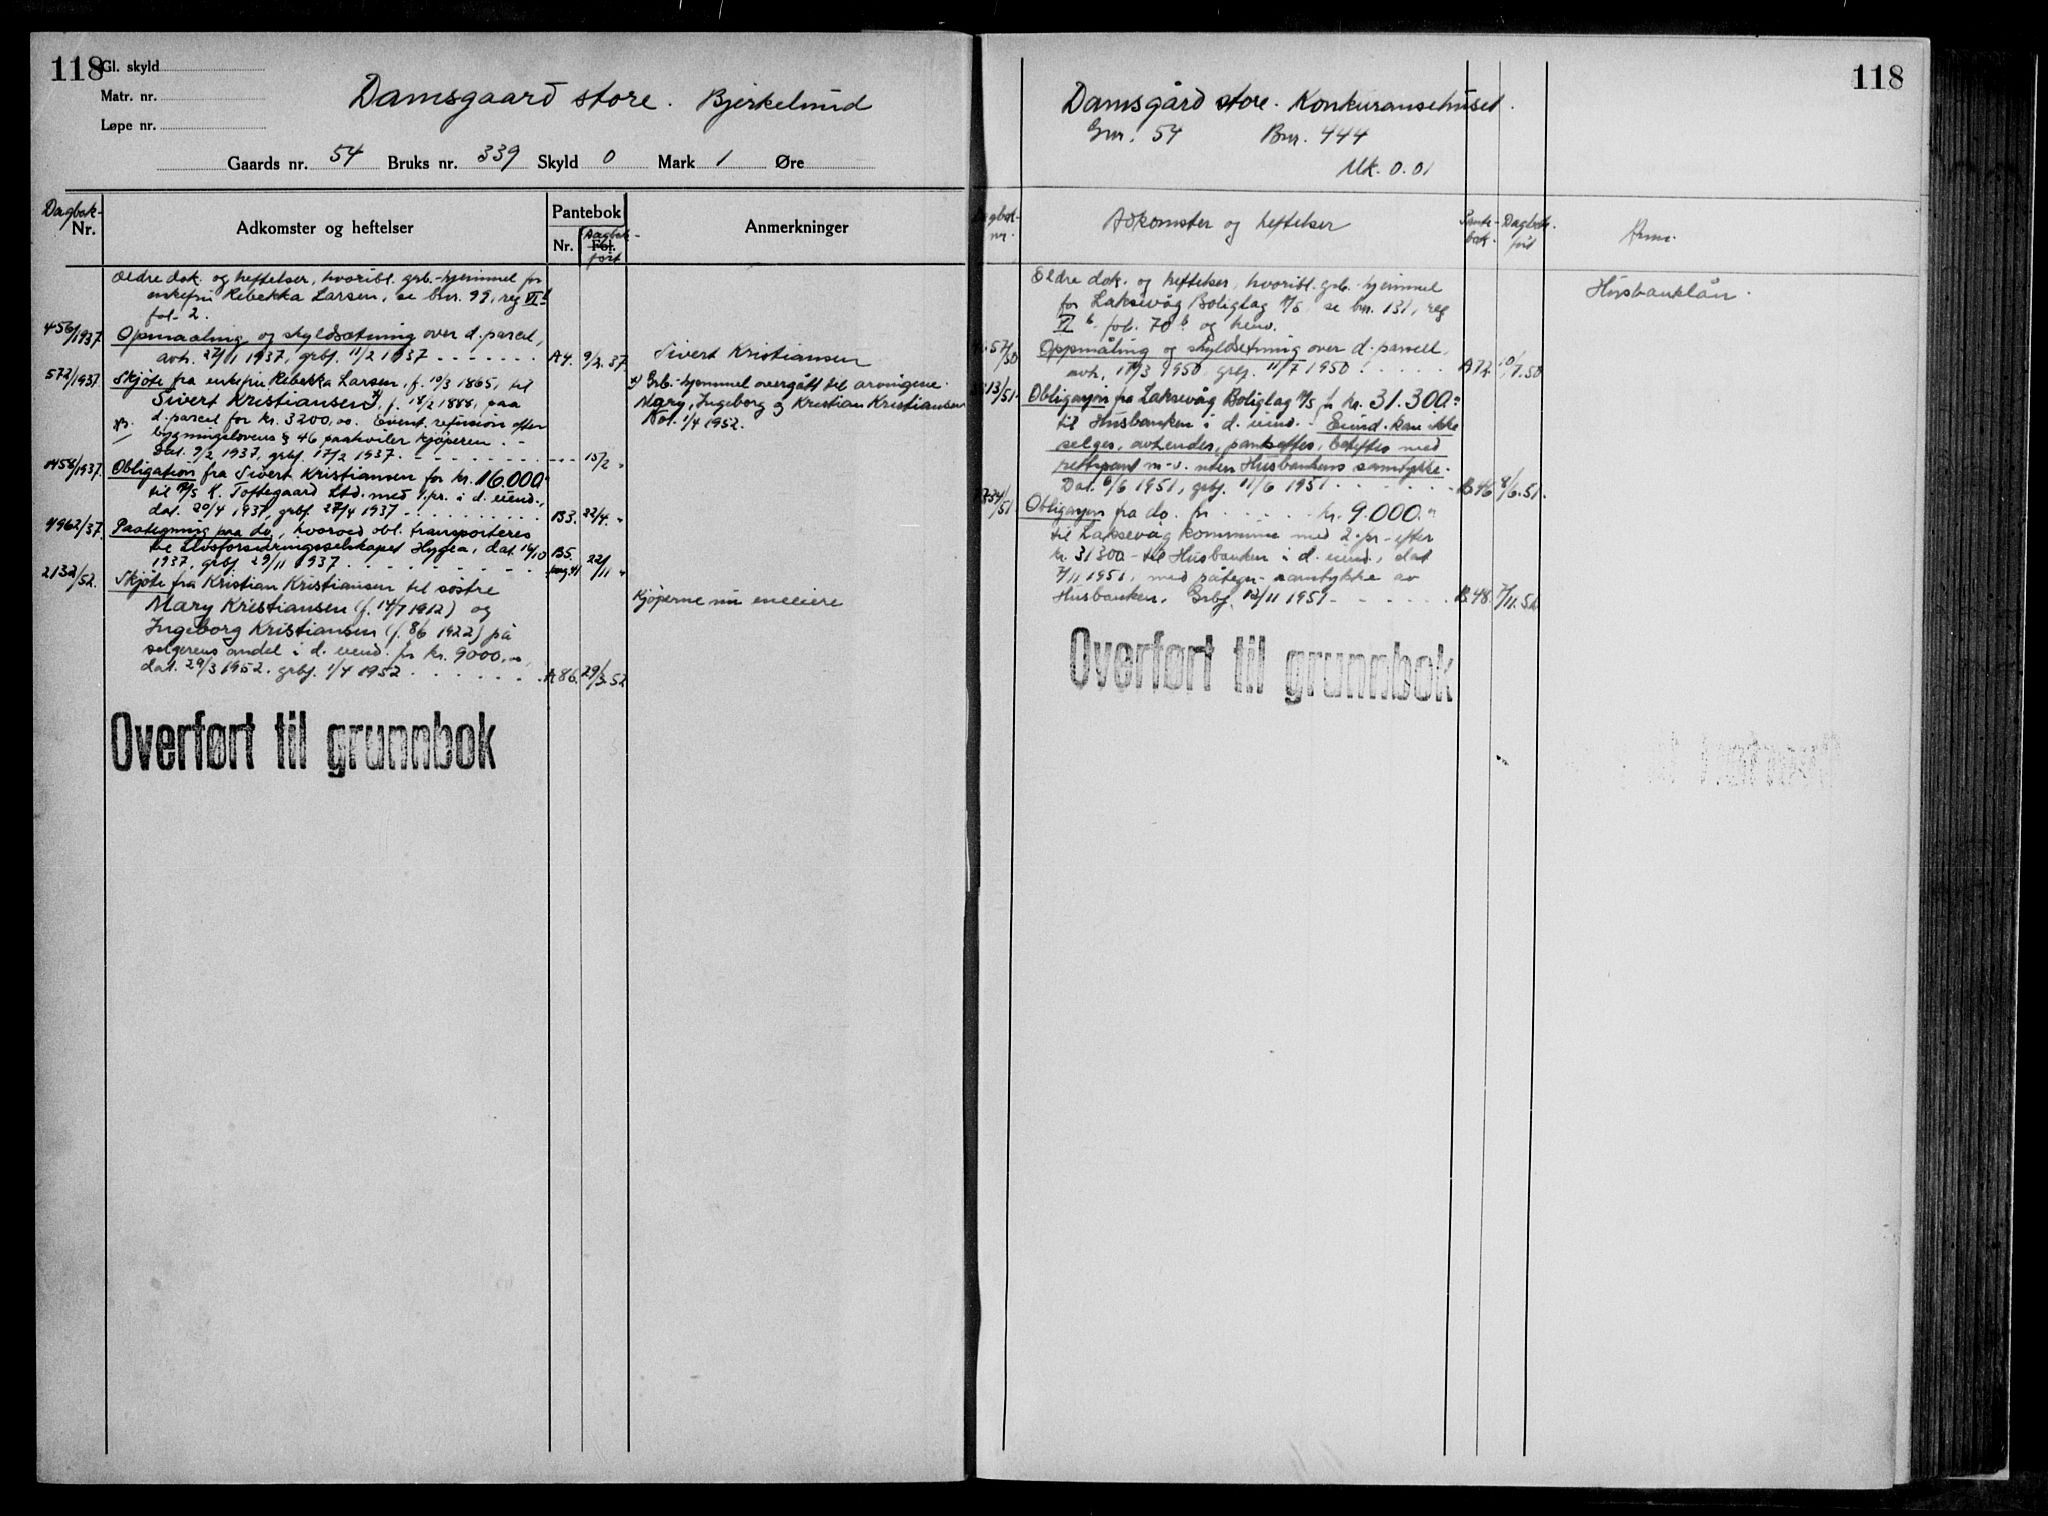 118
Gl. skyld
Matr. nr.
Løpe nr.
Damsgaard store. Bjerkelund
Gaards nr. 54 Bruks nr. 339 Skyld 0 Mark 1 Øre
Dagbok-
Nr.
Adkomster og heftelser
Pantebok
Nr. Fol.
Dagbok-
ført
Anmerkninger
Eldre dok. og heftelser, hvoribl. grb.-hjemmel for
enkefru Rebekka Larsen, se bnr. 99, reg VI
fol. 2.
456/1937 Opmaaling og skyldsætning over d. parcel,
avh. 27/1 1937, grbf. 11/2 1937 A4. 9/2.37 Sivert Kristiansen
572/1937. Skjøte fra enkefru Rebekka Larsen, f. 10/3 1865, til
Sivert Kristiansen x), f. 18/2 1888, paa
d. parcel for kr. 3200,00. Event. refusion efter
bygningslovens § 46 paahviler kjøperen.
Dat. 9/2 1937, grbf. 17/2 1937. 15/2 "
x) Grb.-hjemmel overgått til arvingene
Mary, Ingeborg og Kristian Kristiansen
Not. 1/4 1952.
1458/1937. Obligation fra Sivert Kristiansen for kr. 16.000.-
til A/S K. Toftegaard Ltd. med 1. pr. i d. eiend.,
dat. 20/4 1937, grbf. 27/4 1937 B3. 22/4. "
4962/37. Paategning paa do, hvorved obl. transporteres
til Livsforsikringsselskapet Hygea, dat. 16/10
1937, grbf. 29/11 1937 B5. pag 41 22/11 "
2132/52. Skjøte fra Kristian Kristiansen til søstre
Mary Kristiansen (f. 14/7 1912) og
Ingeborg Kristiansen (f. 8/6 1922) på
selgerens andel i d. eiend. for kr. 9000,-,
dat. 29/3 1952. grbf. 1/4 1952 A86. 29/3.52
Kjøperne nu eneeiere
Overført til grunnbok
118
Damsgård store. Konkuransehuset.
Gnr. 54 Bnr. 444
Mk. 0.01
Dagbok-
nr.
Adkomster og heftelser
Pante-
bok.
Dagbok.
ført
Anm.
Eldre dok. og heftelser, hvoribl. grb.-hjemmel
for Laksevåg Boliglag A/S, se bnr. 131, reg
VI b. fol. 70 b og henv.
Husbanklån.
57/50 Oppmåling og skyldsetning over d. parsell,
avh. 3 1950, grbf. 11/7 1950 A72. 10/7.50
13/51. Obligasjon fra Laksevåg Boliglag A/S for kr. 31.300.-
til Husbanken i d. eiend. Eiend. kan ikke
selges, avhendes, pantsettes, beheftes med
m. v. uten Husbankens samtykke.
Dat. 6/6 1951, grbf. 11/6 1951 B46 8/6.51.
34/51. Obligasjon fra do. for kr. 9.000.-
til Laksevåg kommune med 2. pr. efter
kr. 31300.- til Husbanken i d. eiend., dat
7/11 1951, med påtegn. samtykke av
Husbanken. Grbf. 12/11 1951 B48. 7/11.51
Overført til grunnbok